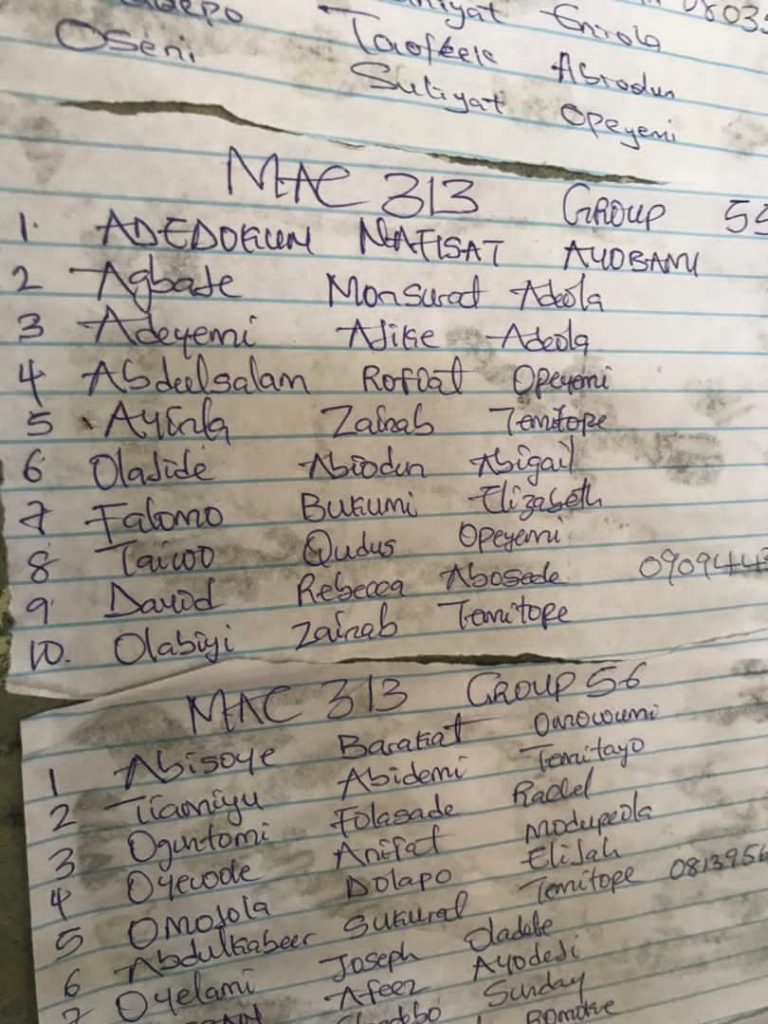 Oseni Taofeek Abiodun
Suliyat Opeyemi
MAC 313 GROUP 55
1. ADEDOKUN NAFISAT AYOBAMI
2 Agbaje Monsurat Adeola
3 Adeyemi Ajike Adeola
4 Abdulsalam Rofiat Opeyemi
5 Ayinla Zainab Temitope
6 Oladide Abiodun Abigail
7 Falomo Bukumi Elizabeth
8 Taiwo Qudus Opeyemi
9 David Rebecca Abosede 0909443
10. Olabiyi Zainab Temitope
MAC 313 GROUP 56
1 Abisoye Barakat Omowumi
2 Tiamiyu Abidemi Temitayo
3 Oguntomi Folasade Rachel
4 Oyewole Anifat Modupeola
5 Omojola Dolapo Elijah
6 Abdulkabeer Sukurat Temitope 0813956
7 Oyelami Joseph Oladele
Afeez Ayodeji
Sunday